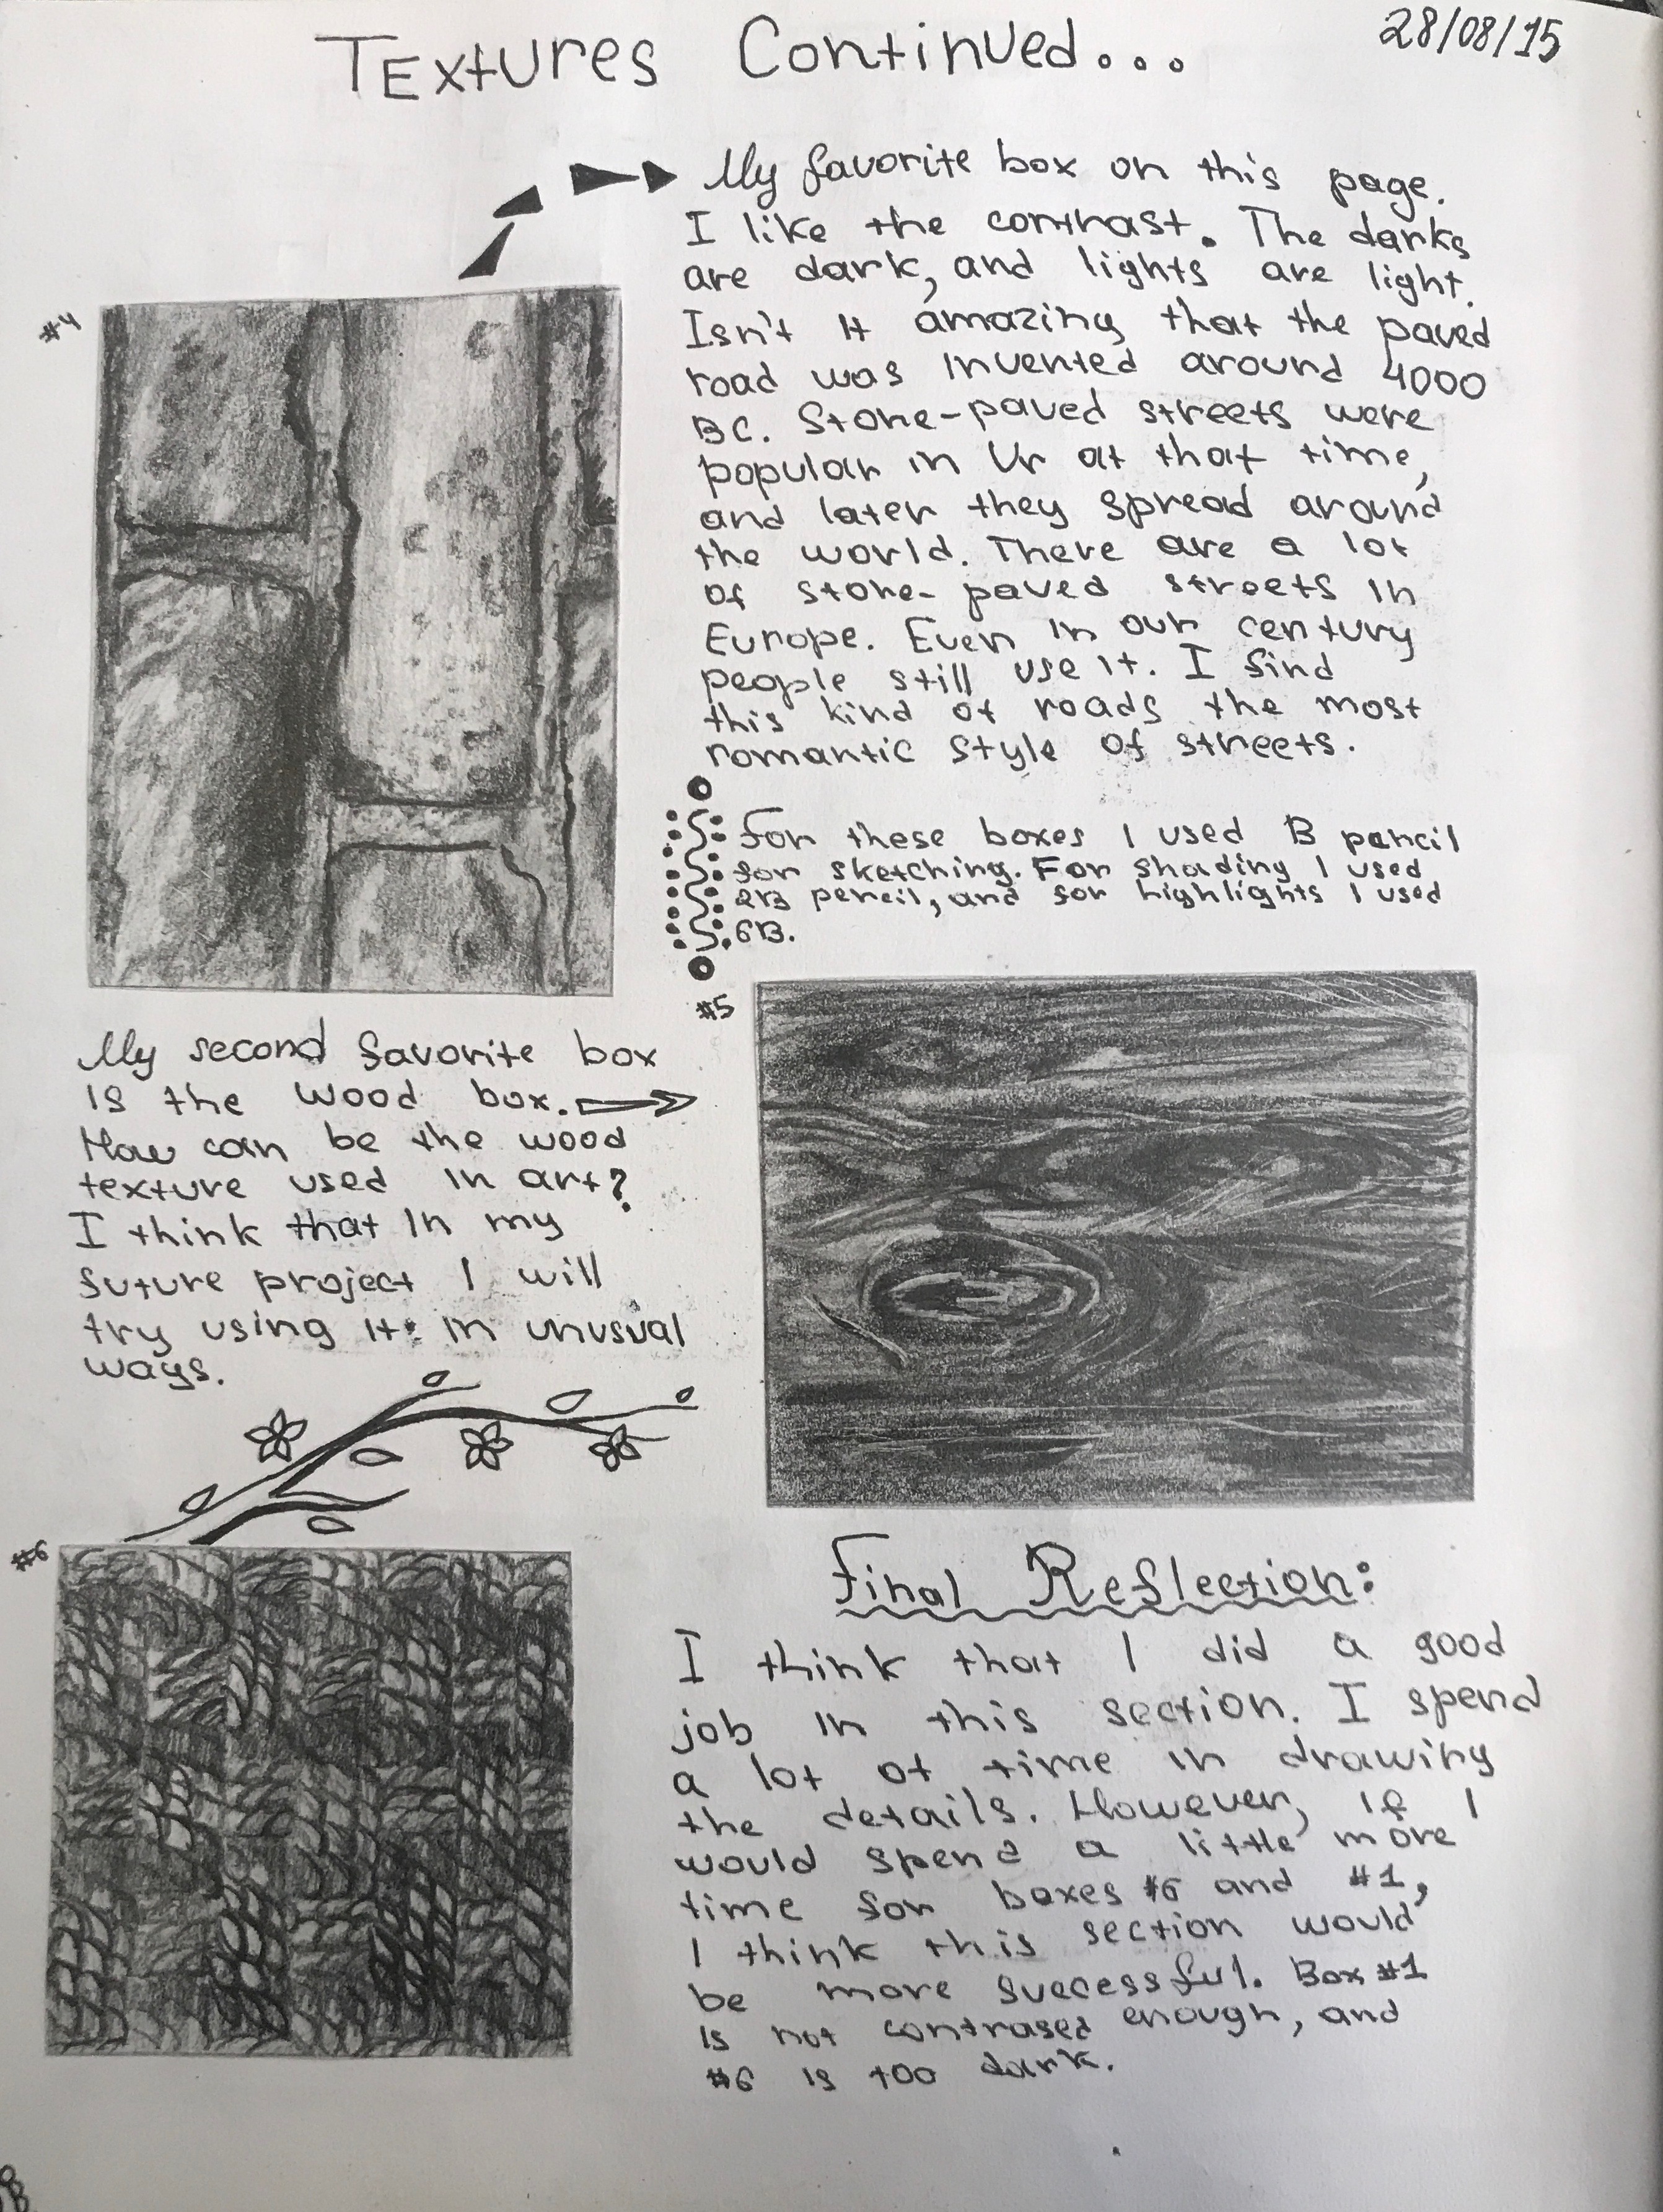 Textures Continued...
28/08/15
My favorite box on this page.
I like the contrast. The darks
are dark, and lights are light.
Isn't it amazing that the paved
road was invented around 4000
BC. Stone-paved streets were
popular in Ur at that time,
and later they spread around
the world. There are a lot
of stone-paved streets in
Europe. Even in our century
people still use it. I find
this kind of roads the most
romantic style of streets.
#4
For these boxes I used B pencil
for sketching. For shading I used
2B pencil, and for highlights I used
6B.
#5
My second favorite box
is the wood box.
How can be the wood
texture used in art?
I think that in my
future project I will
try using it in unusual
ways.
#6
Final Reflection:
I think that I did a good
job in this section. I spend
a lot of time in drawing
the details. However, if I
would spend a little more
time for boxes #6 and #1,
I think this section would
be more successful. Box #1
is not contrased enough, and
#6 is too dark.